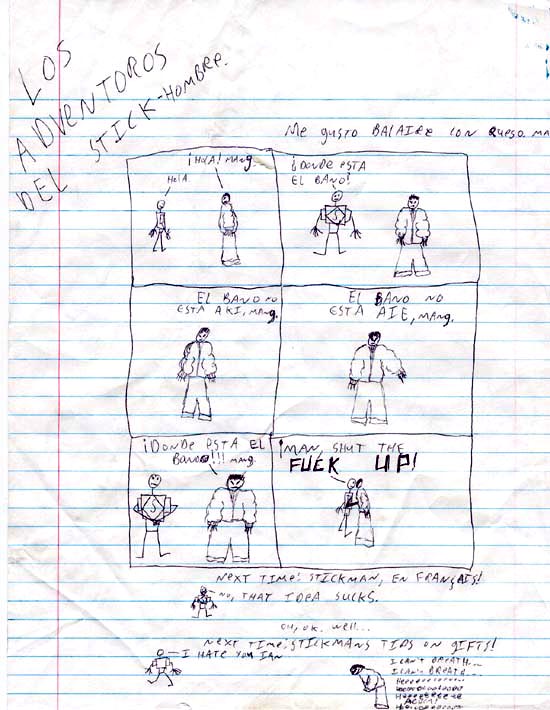 LOS
ADVENTOROS
DEL STICK-HOMBRE.
Me gusto BALAIRE CON QUESO. MA
HOLA.
¡HOLA! MANG.
¡DONDE ESTA
EL BANO!
EL BANO NO
ESTA AKI, MANG.
EL BANO NO
ESTA AIE, MANG.
¡DONDE ESTA EL
BANO!!! MANG.
¡MAN, SHUT THE
FUEK UP!
NEXT TIME: STICKMAN, EN FRANÇAIS!
NO, THAT IDEA SUCKS.
OH, OK. WELL...
NEXT TIME: STICKMANS TIPS ON GIFTS!
I HATE YOU IAN
I CAN'T BREATH...
I CAN'T BREATH...